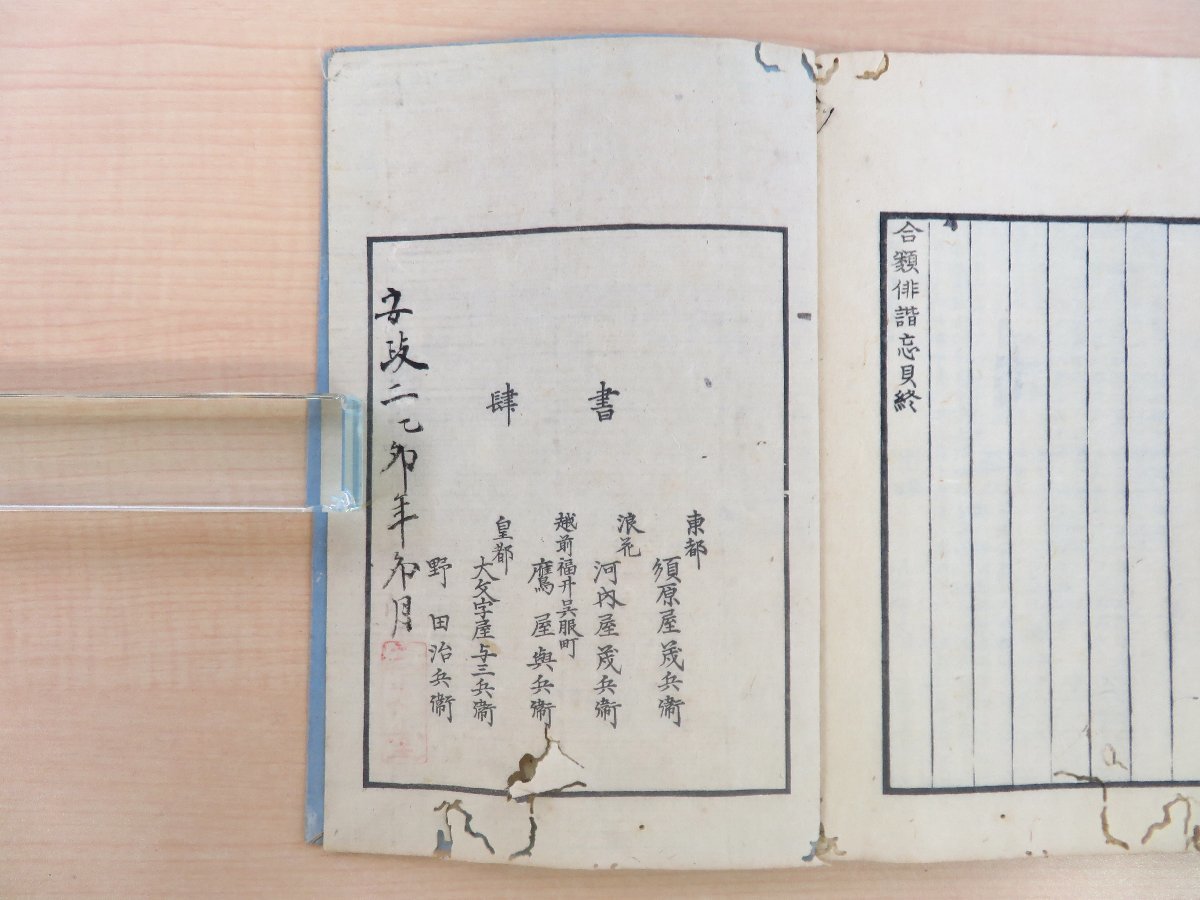 合類俳諧忘貝終
書肆
東都
須原屋茂兵衞
浪花
河內屋茂兵衞
越前福井呉服町
鷹屋與兵衞
皇都
大文字屋与三兵衞
野田治兵衞
安政二乙卯年